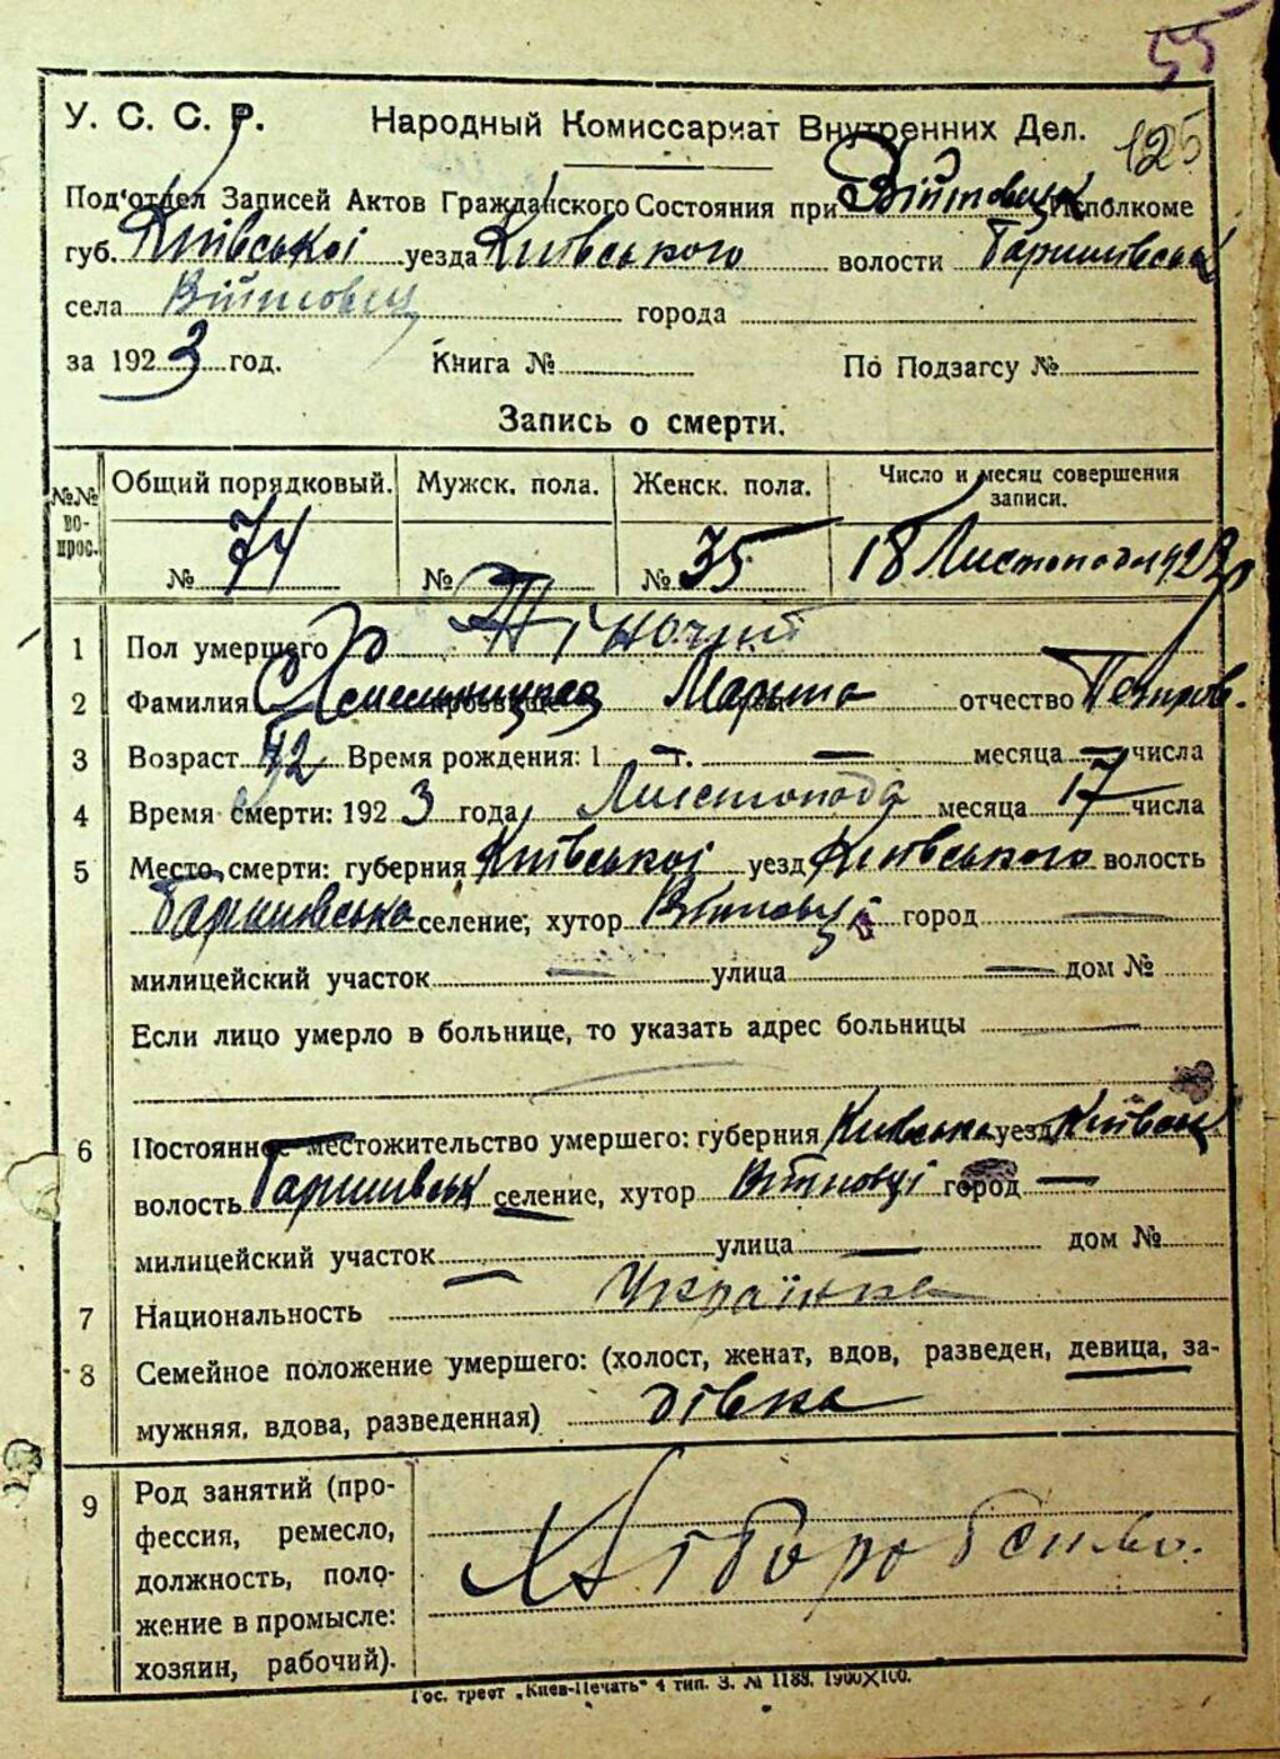 55
У. С. С. Р. Народный Комиссариат Внутренних Дел. 125
Под'отдел Записей Актов Гражданского Состояния при Війтовецк Исполкоме
губ. Київської уезда Київського волости Баришівської
села Війтовец города
за 1923 год. Книга № По Подзагсу №
Запись о смерти.
№№ во-прос. Общий порядковый. Мужск. пола. Женск. пола. Число и месяц совершения записи.
№ 74 № № 35 18 Листопода 1923
1 Пол умершего Жіночий
2 Фамилия прозвище Марына отчество Петров.
3 Возраст Время рождения: 1 — г. — месяца — числа
4 Время смерти: 1923 года, Листопода месяца 17 числа
5 Место смерти: губерния Київської уезд Київського волость
Баришівська селение, хутор Війтовці город —
милицейский участок — улица — дом №
Если лицо умерло в больнице, то указать адрес больницы —
6 Постоянное местожительство умершего: губерния Київська уезд Київськ
волость Баришівськ селение, хутор Вітовці город —
милицейский участок — улица — дом №
7 Национальность Українка
8 Семейное положение умершего: (холост, женат, вдов, разведен, девица, за-
мужняя, вдова, разведенная) дівка
9 Род занятий (про-
фессия, ремесло,
должность, поло-
жение в промысле:
хозяин, рабочий).
Хліборобство.
Гос. трест „Киев-Печать“ 4 тип. З. № 1188. 1900×100.